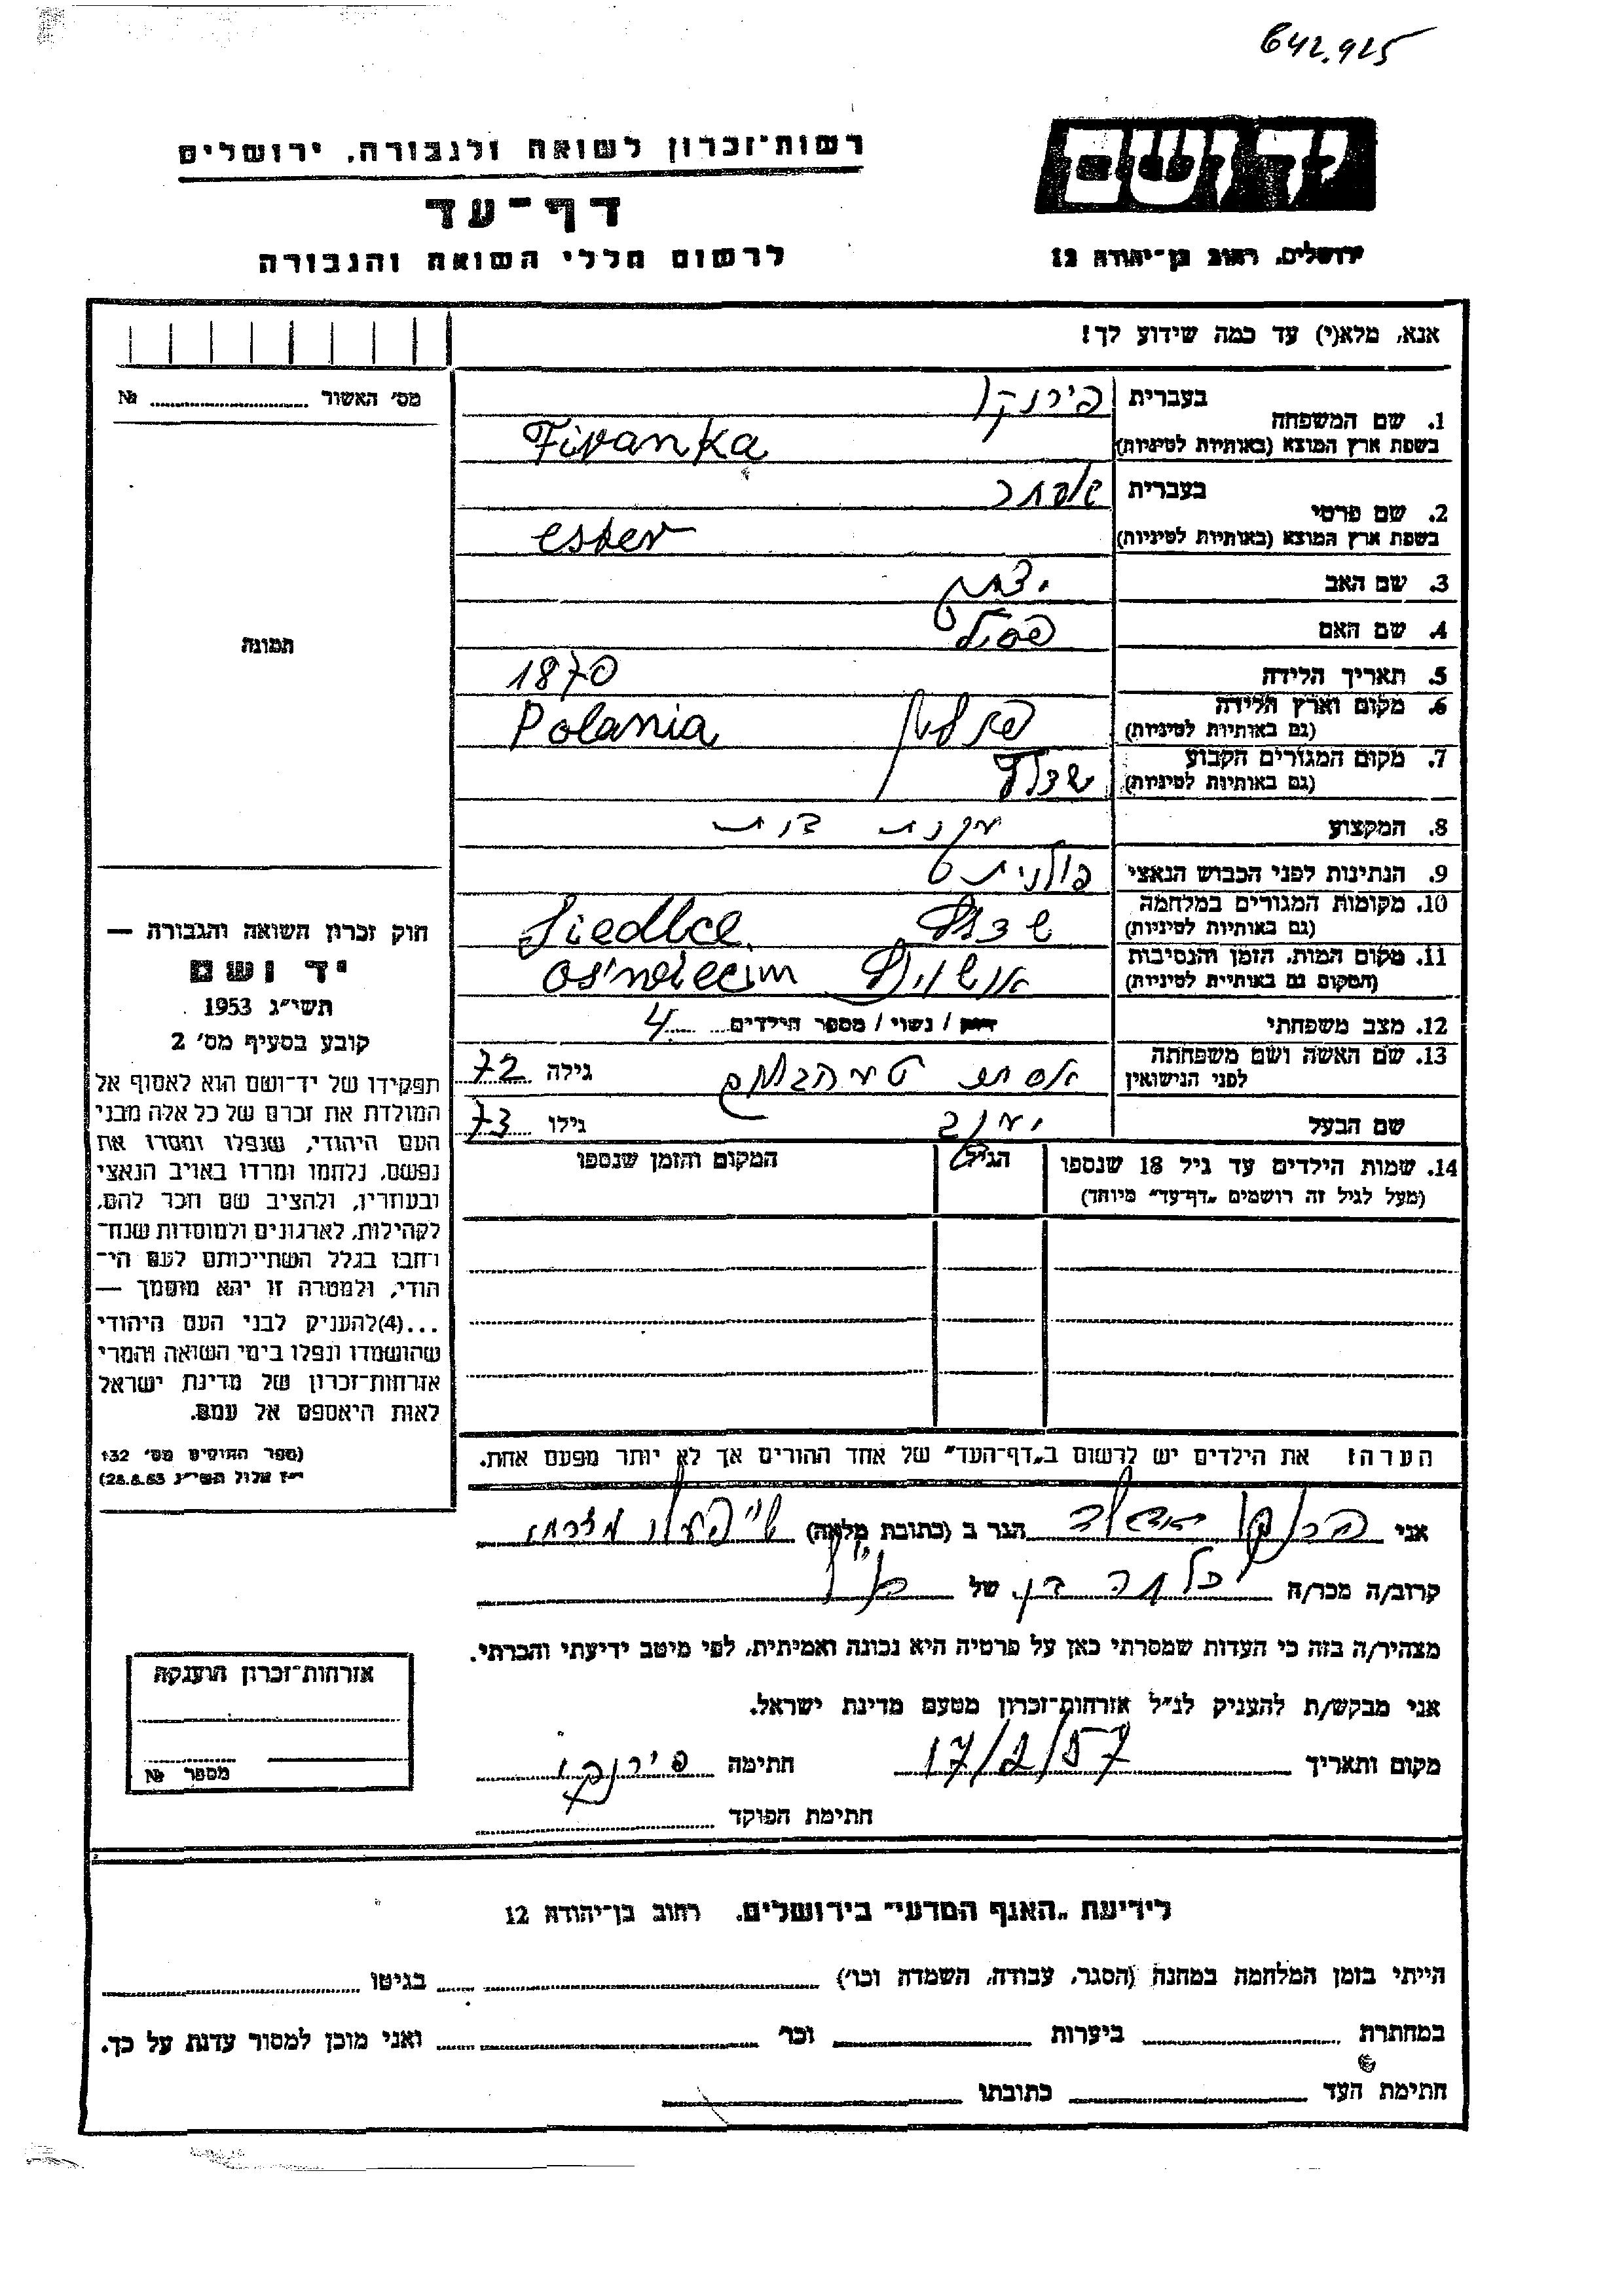 642.925
רשות־זכרון לשואה ולגבורה, ירושלים
יד ושם
דף־עד
לרשום חללי השואה והגבורה
ירושלים, רחוב בן־יהודה 12
אנא, מלא(י) עד כמה שידוע לך!
מס׳ האשור № 
1. שם המשפחה
בעברית פירנקו
בשפת ארץ המוצא (באותיות לטיניות) Firanka
2. שם פרטי
בעברית אסתר
בשפת ארץ המוצא (באותיות לטיניות) ester
3. שם האב יצחק
4. שם האם
5. תאריך הלידה 1870
6. מקום וארץ הלידה
(גם באותיות לטיניות) Polania פולין
7. מקום המגורים הקבוע
(גם באותיות לטיניות) שדלץ
8. המקצוע עקרת בית
9. הנתינות לפני הכבוש הנאצי פולנית
10. מקומות המגורים במלחמה
(גם באותיות לטיניות) שדלץ Siedlce
11. מקום המות, הזמן והנסיבות
(המקום גם באותיות לטיניות) אושוויץ
12. מצב משפחתי רווק / נשוי / מספר הילדים 4
13. שם האשה ושם משפחתה
לפני הנישואין אסתר גילה 72
שם הבעל יעקב גילו 73
14. שמות הילדים עד גיל 18 שנספו
(מעל לגיל זה רושמים „דף־עד״ מיוחד)
הגיל
המקום והזמן שנספו
הערה: את הילדים יש לרשום ב„דף־העד״ של אחד ההורים אך לא יותר מפעם אחת.
תמונה
חוק זכרון השואה והגבורה —
יד ושם
תשי״ג 1953
קובע בסעיף מס׳ 2
תפקידו של יד־ושם הוא לאסוף אל
המולדת את זכרם של כל אלה מבני
העם היהודי, שנפלו ומסרו את
נפשם, נלחמו ומרדו באויב הנאצי
ובעוזריו, ולהציב שם וזכר להם,
לקהילות, לארגונים ולמוסדות שנח־
רחבו בגלל השתייכותם לעם הי־
הודי, ולמטרה זו יהא מוסמך —
...(4)להעניק לבני העם היהודי
שהושמדו ונפלו בימי השואה והמרי
אזרחות־זכרון של מדינת ישראל
לאות היאספם אל עמם.
(ספר החוקים מס׳ 132
י״ז אלול תשי״ג 28.8.53)
אני הגר ב (כתובת מלאה)
קרוב/ה מכר/ה של
מצהיר/ה בזה כי העדות שמסרתי כאן על פרטיה היא נכונה ואמיתית, לפי מיטב ידיעתי והכרתי.
אני מבקש/ת להעניק לנ״ל אזרחות־זכרון מטעם מדינת ישראל.
מקום ותאריך 17/2/57 חתימה פירנקו
חתימת הפוקד
אזרחות־זכרון הוענקה
מספר №
לידיעת „האגף המדעי״ בירושלים, רחוב בן־יהודה 12
הייתי בזמן המלחמה במחנה (הסגר, עבודה, השמדה וכו׳) בגיטו
במחתרת ביערות וכו׳ ואני מוכן למסור עדות על כך.
חתימת העד כתובתו